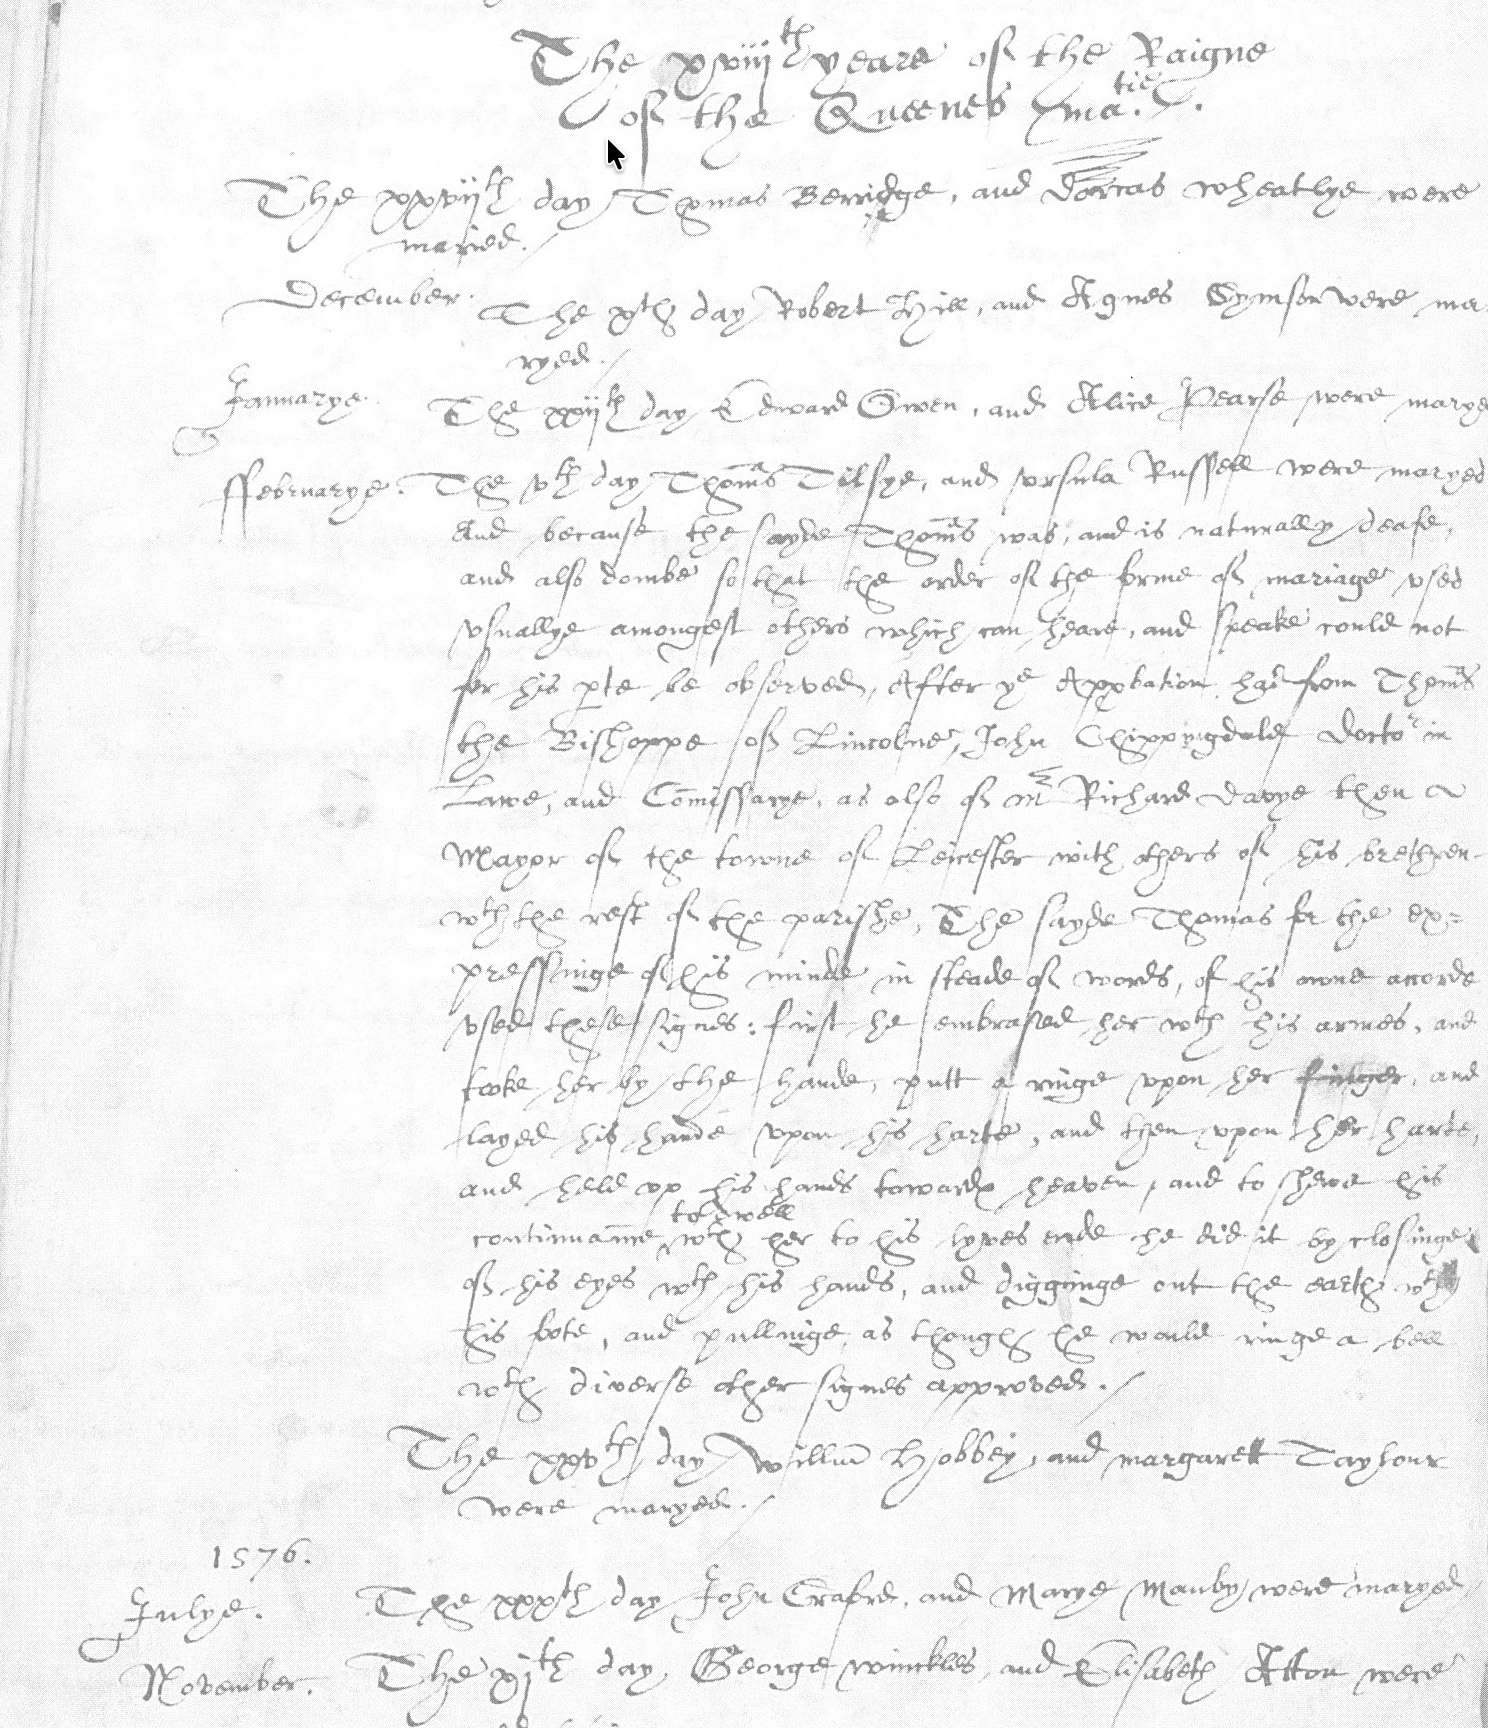 The xviijth yeare of the Raigne
of the Queenes Matie.
The xxvijth day Thomas Berridge, and Dorcas Wheatlye were
maried.
December. The xth day Robert Hill, and Agnes Symson were ma
ryed.
Januarye. The xxijth day Edward Owen, and Alice Pearse were marye
ffebruarye. The vth day Thomas Tilsye, and Ursula Russell were maryed
and because the sayde Thomas was, and is naturally deafe,
and also dombe so that the order of the forme of mariage used
usuallye amongest others which can heare, and speake could not
for his pte be observed, After ye Appbation had from Thomas
the Bishoppe of Lincolne, John Chippingdale doctor in
Lawe, and Comissarye, as also of mr Richard Davye then
Mayor of the towne of Leicester with others of his brethren
wth the rest of the parishe, The sayde Thomas for the ex=
pressinge of his minde in steade of words, of his owne accorde
used these signes: first he embrased her wth his armes, and
tooke her by the hande, putt a ringe upon her finger, and
layed his hande upon his harte, and then upon her harte,
and held up his hands towards heaven, and to shewe his
continuance to dwell wth her to his lyves ende he did it by closinge
of his eyes wth his hands, and digginge out the earth wth
his fote, and pullinge as though he would ringe a bell
wth diverse other signes approved.
The xxvth day Willm Hobbey, and Margarett Taylour
were maryed.
1576.
Julye. The xxxth day John Crafrd, and Marye Manby were maryed
November. The xjth day, George Winckles, and Elisabeth Atton were